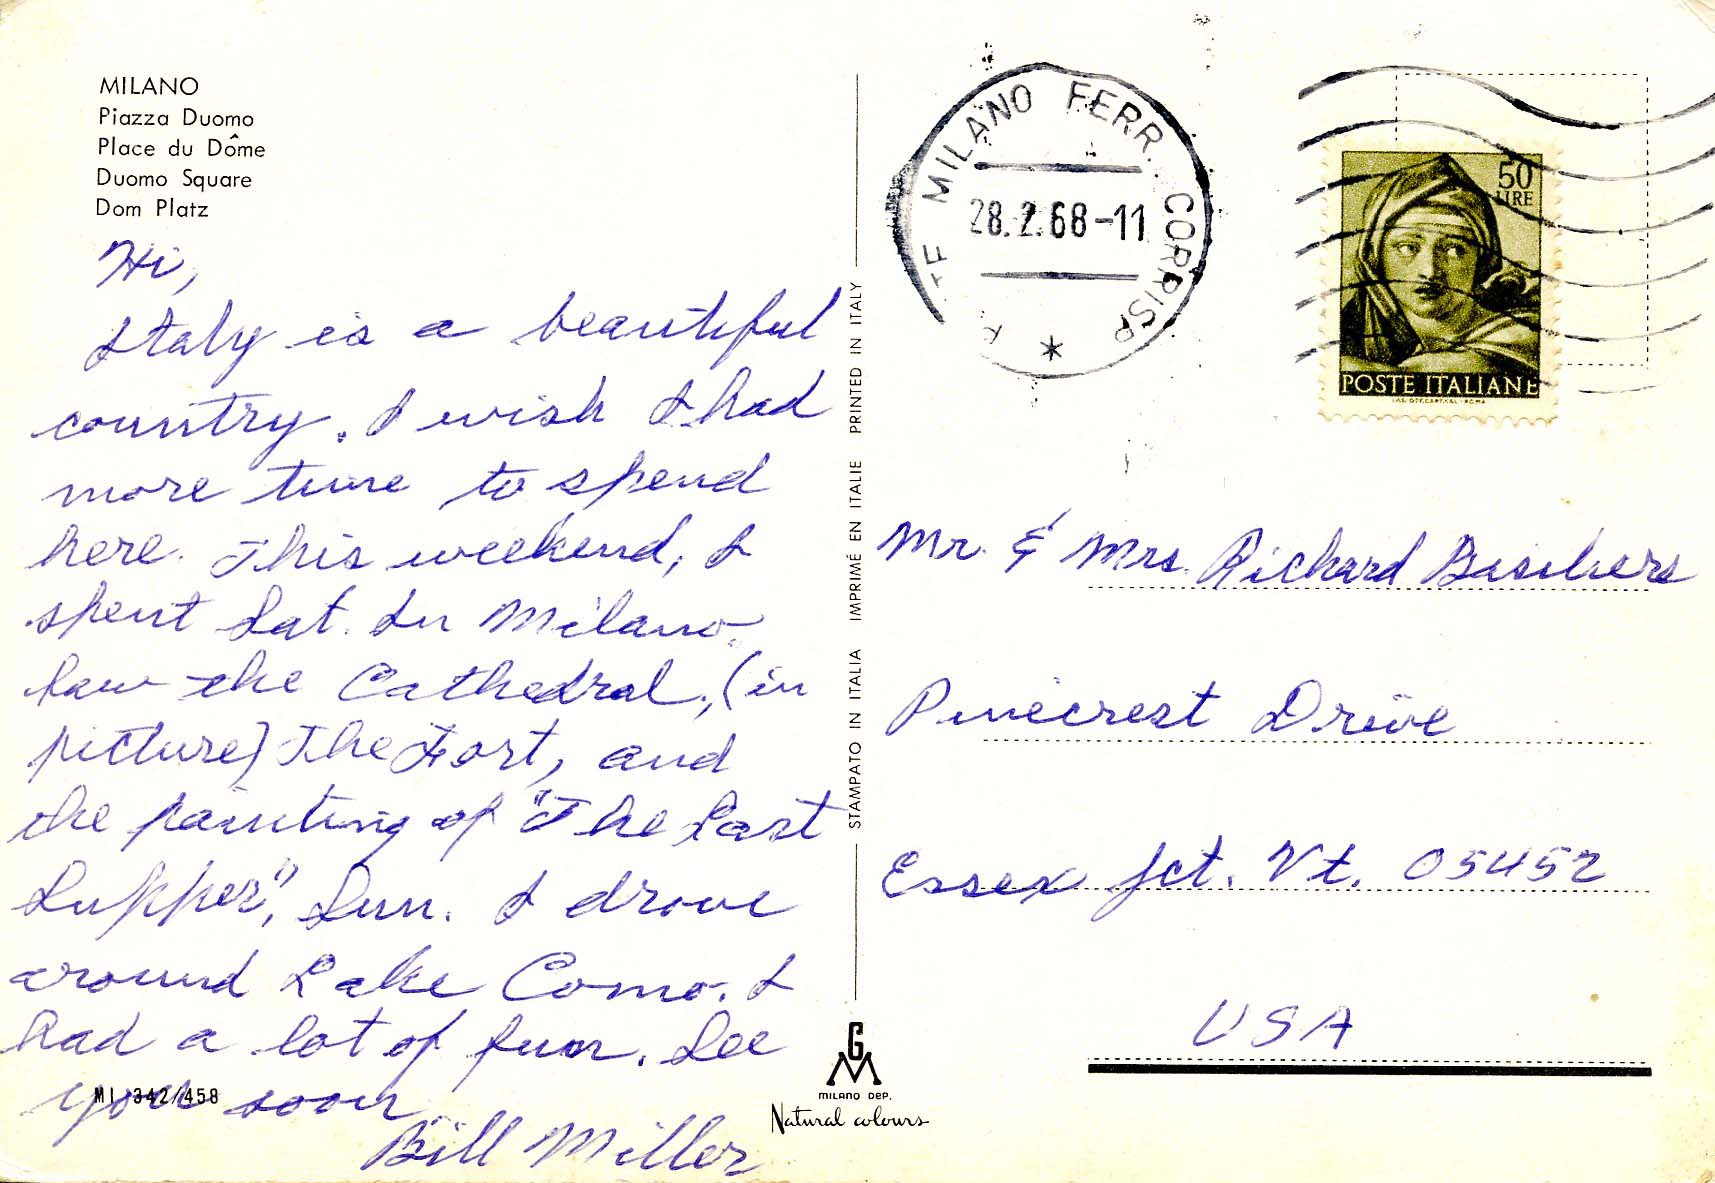 MILANO
Piazza Duomo
Place du Dôme
Duomo Square
Dom Platz
Hi,
Italy is a beautiful
country. I wish I had
more time to spend
here. This weekend, I
spent Sat. In Milano.
Saw the Cathedral, (in
picture) The Fort, and
the painting of "The Last
Supper", Sun. I drove
around Lake Como. I
had a lot of fun. See
you soon,
Bill Miller
MI 342/458
STAMPATO IN ITALIA IMPRIMÉ EN ITALIE PRINTED IN ITALY
GM
MILANO DEP.
Natural colours
MILANO FERR. CORRISP
28.2.68-11
50
LIRE
POSTE ITALIANE
Mr. & Mrs. Richard
Pinecrest Drive
Essex Jct. Vt. 05452
USA